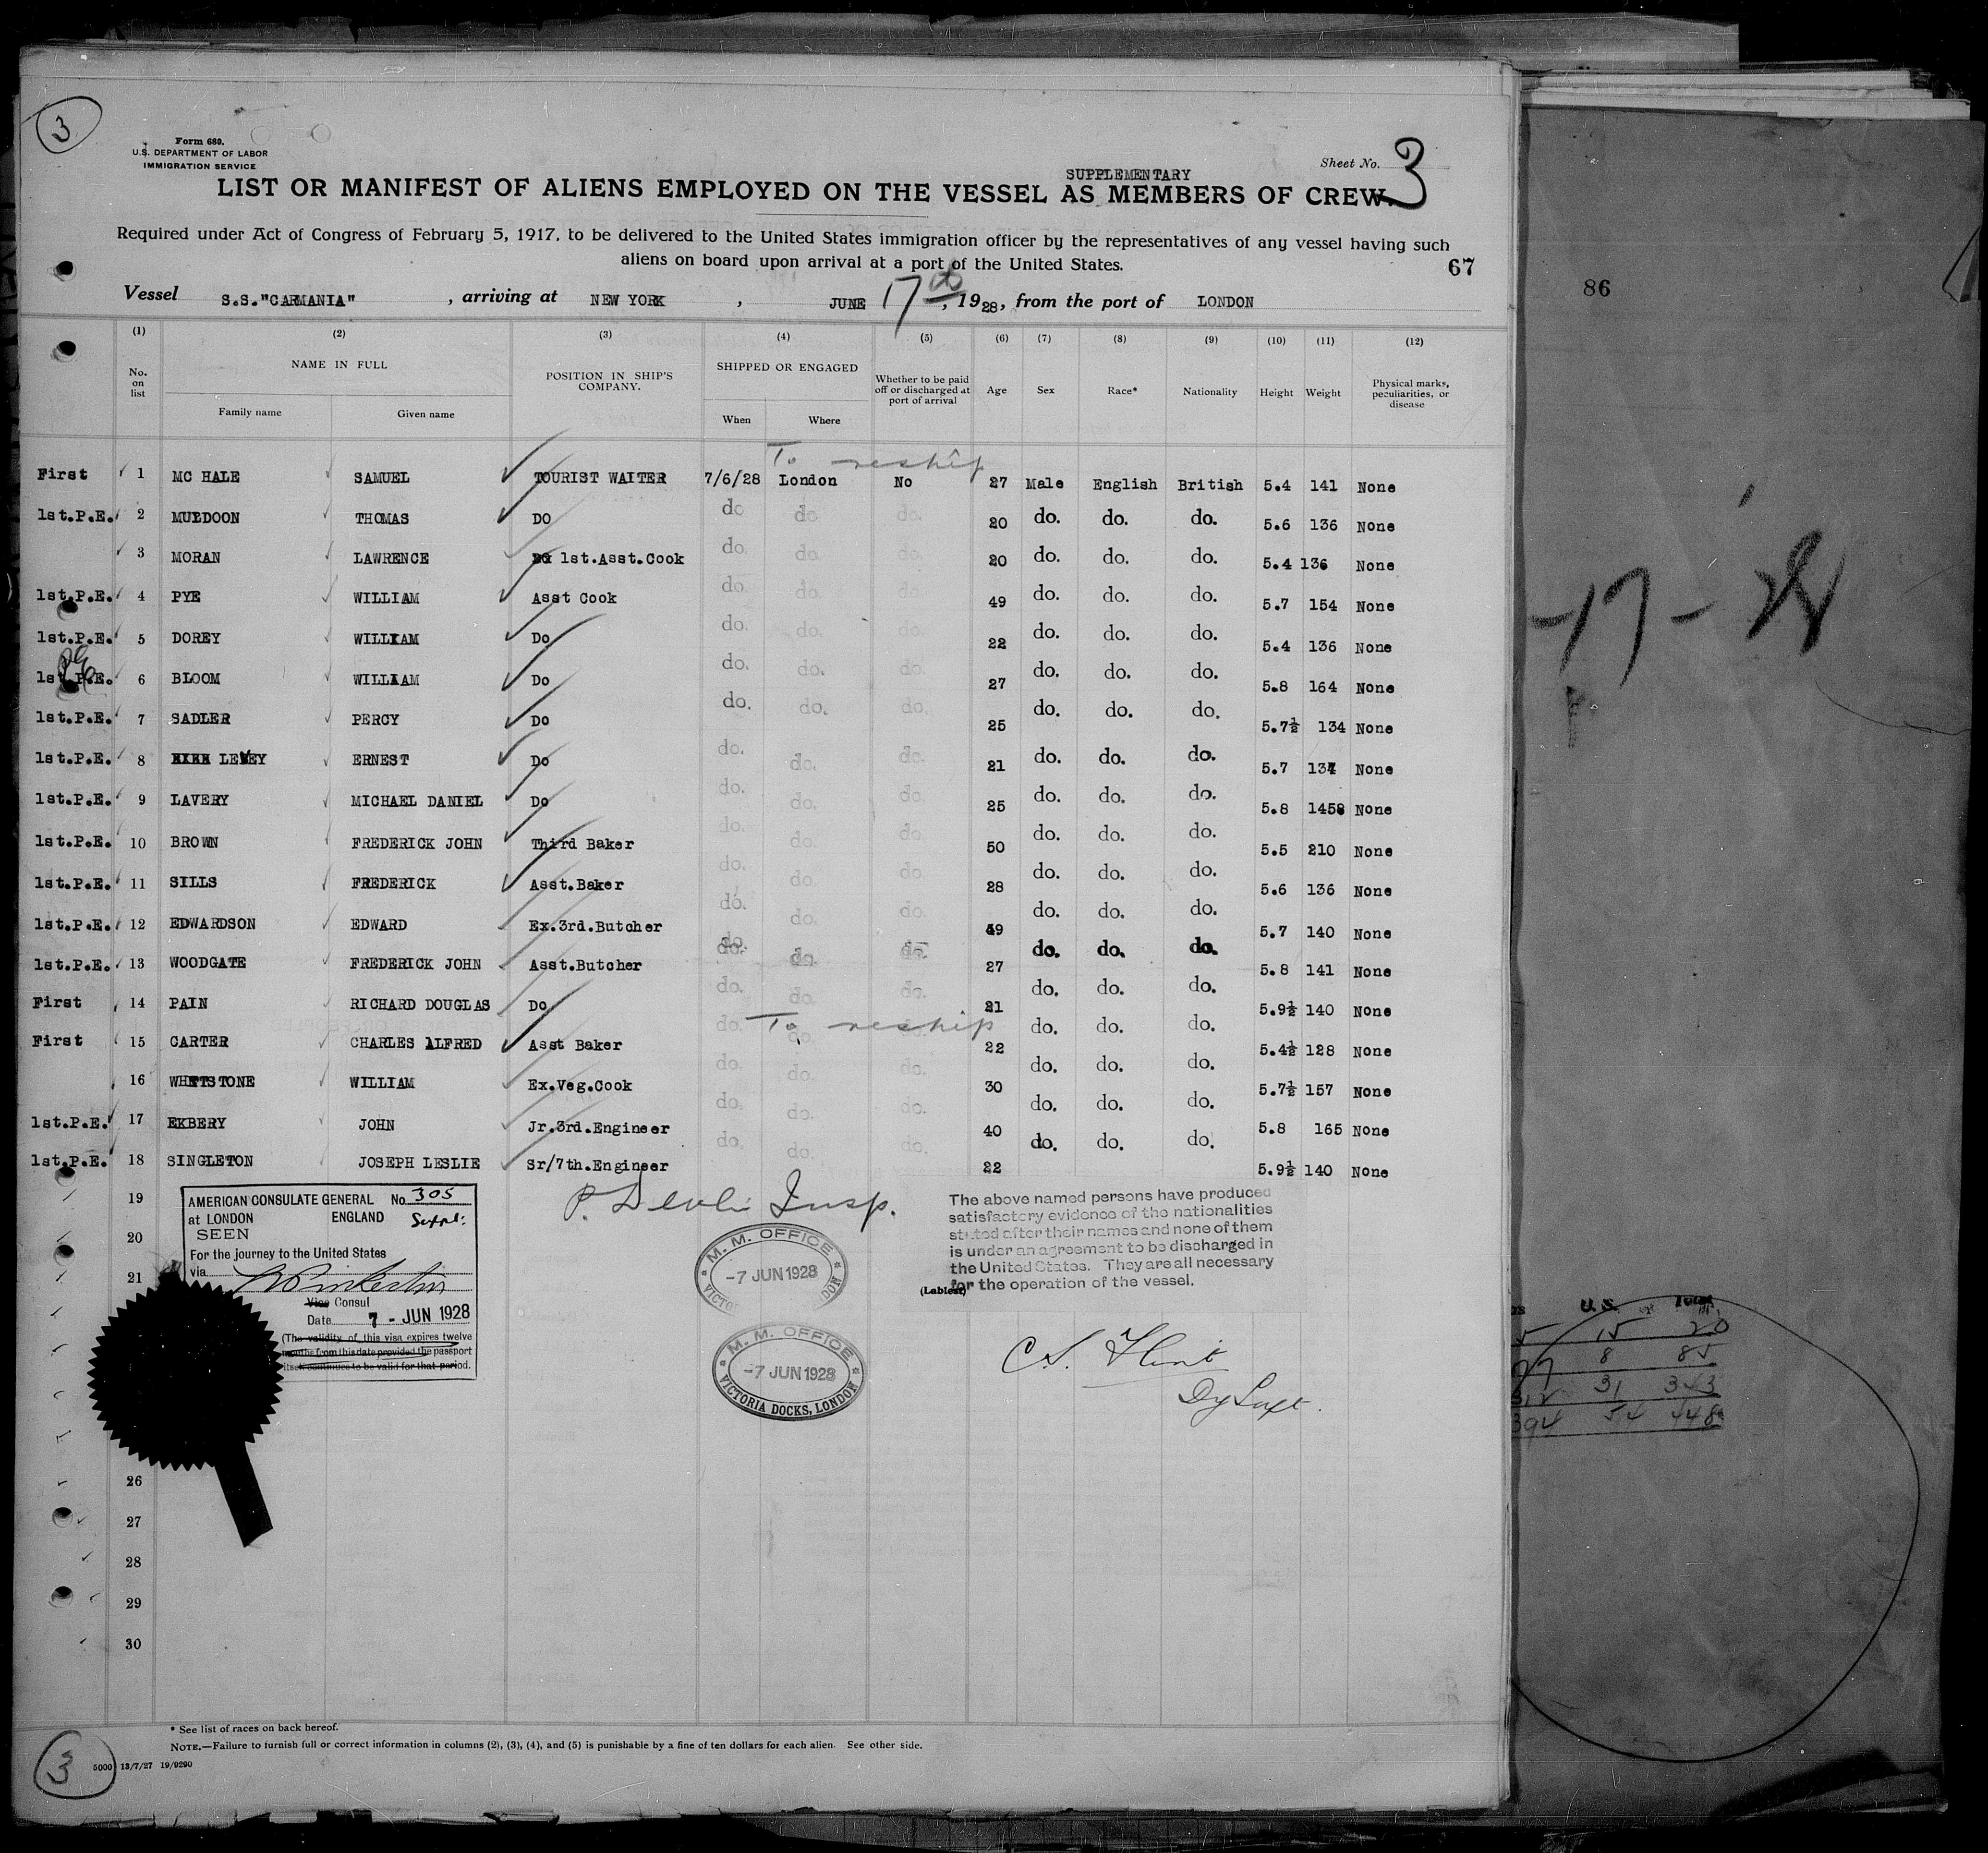 3
Form 680.
U.S. DEPARTMENT OF LABOR
IMMIGRATION SERVICE
Sheet No. 3
SUPPLEMENTARY
LIST OR MANIFEST OF ALIENS EMPLOYED ON THE VESSEL AS MEMBERS OF CREW.
Required under Act of Congress of February 5, 1917, to be delivered to the United States immigration officer by the representatives of any vessel having such
aliens on board upon arrival at a port of the United States.
67
Vessel S.S."CARMANIA" , arriving at NEW YORK , JUNE 17th, 1928, from the port of LONDON
(1) (2) (3) (4) (5) (6) (7) (8) (9) (10) (11) (12)
No. on list NAME IN FULL Family name Given name POSITION IN SHIP'S COMPANY. SHIPPED OR ENGAGED When Where Whether to be paid off or discharged at port of arrival Age Sex Race* Nationality Height Weight Physical marks, peculiarities, or disease
To reship
First 1 MC HALE SAMUEL TOURIST WAITER 7/6/28 London No 27 Male English British 5.4 141 None
1st.P.E. 2 MULDOON THOMAS DO do do. do. 20 do. do. do. 5.6 136 None
3 MORAN LAWRENCE 1st.Asst.Cook do. do. do. 20 do. do. do. 5.4 136 None
1st.P.E. 4 PYE WILLIAM Asst Cook do. do. do. 49 do. do. do. 5.7 154 None
1st.P.E. 5 DOREY WILLIAM Do do. do. do. 22 do. do. do. 5.4 136 None
1st.P.E. 6 BLOOM WILLIAM Do do. do. do. 27 do. do. do. 5.8 164 None
1st.P.E. 7 SADLER PERCY Do do. do. do. 25 do. do. do. 5.7½ 134 None
1st.P.E. 8 LEVEY ERNEST Do do. do. do. 21 do. do. do. 5.7 134 None
1st.P.E. 9 LAVERY MICHAEL DANIEL Do do. do. do. 25 do. do. do. 5.8 None
1st.P.E. 10 BROWN FREDERICK JOHN Third Baker do. do. do. 50 do. do. do. 5.5 210 None
1st.P.E. 11 SILLS FREDERICK Asst.Baker do. do. do. 28 do. do. do. 5.6 136 None
1st.P.E. 12 EDWARDSON EDWARD Ex.3rd.Butcher do. do. do. 49 do. do. do. 5.7 140 None
1st.P.E. 13 WOODGATE FREDERICK JOHN Asst.Butcher do. do. do. 27 do. do. do. 5.8 141 None
First 14 PAIN RICHARD DOUGLAS Do do. do. do. 21 do. do. do. 5.9½ 140 None
To reship
First 15 CARTER CHARLES ALFRED Asst Baker do. do. 22 do. do. do. 5.4½ 128 None
16 WHETSTONE WILLIAM Ex.Veg.Cook do. do. do. 30 do. do. do. 5.7½ 157 None
1st.P.E. 17 EKBERY JOHN Jr.3rd.Engineer do. do. do. 40 do. do. do. 5.8 165 None
1st.P.E. 18 SINGLETON JOSEPH LESLIE Sr/7th.Engineer do. do. do. 22 do. do. do. 5.9½ 140 None
19
20
21
26
27
28
29
30
AMERICAN CONSULATE GENERAL No. 305
at LONDON ENGLAND Suppl.
SEEN
For the journey to the United States
via
Vice Consul
Date 7 - JUN 1928
(The validity of this visa expires twelve
months from this date provided the passport
itself continues to be valid for that period.
P. Devlin Insp.
M. M. OFFICE
-7 JUN 1928
M. M. OFFICE
-7 JUN 1928
VICTORIA DOCKS, LONDON
The above named persons have produced
satisfactory evidence of the nationalities
stated after their names and none of them
is under an agreement to be discharged in
the United States. They are all necessary
for the operation of the vessel.
C S. Flint
Dy Supt.
* See list of races on back hereof.
NOTE.—Failure to furnish full or correct information in columns (2), (3), (4), and (5) is punishable by a fine of ten dollars for each alien. See other side.
3
5000 13/7/27 19/9290
86
-17-28
U.S. Total
5 15 20
77 8 85
312 31 343
394 54 448